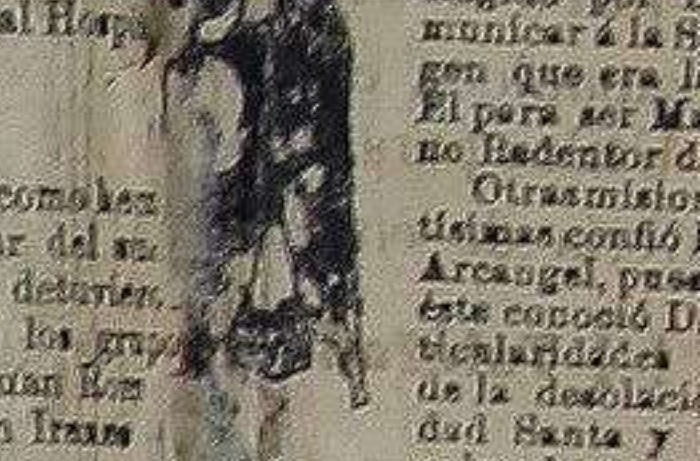 al Hospi
como hen
ar del su
detuvien
los grup
uan Rom
municar á la S
gen que era
El para ser
no Redentor d
Otras mision
tísimas confió
Arcangel, pues
éste conoció
ticularidades
de la desolaci
dad Santa y